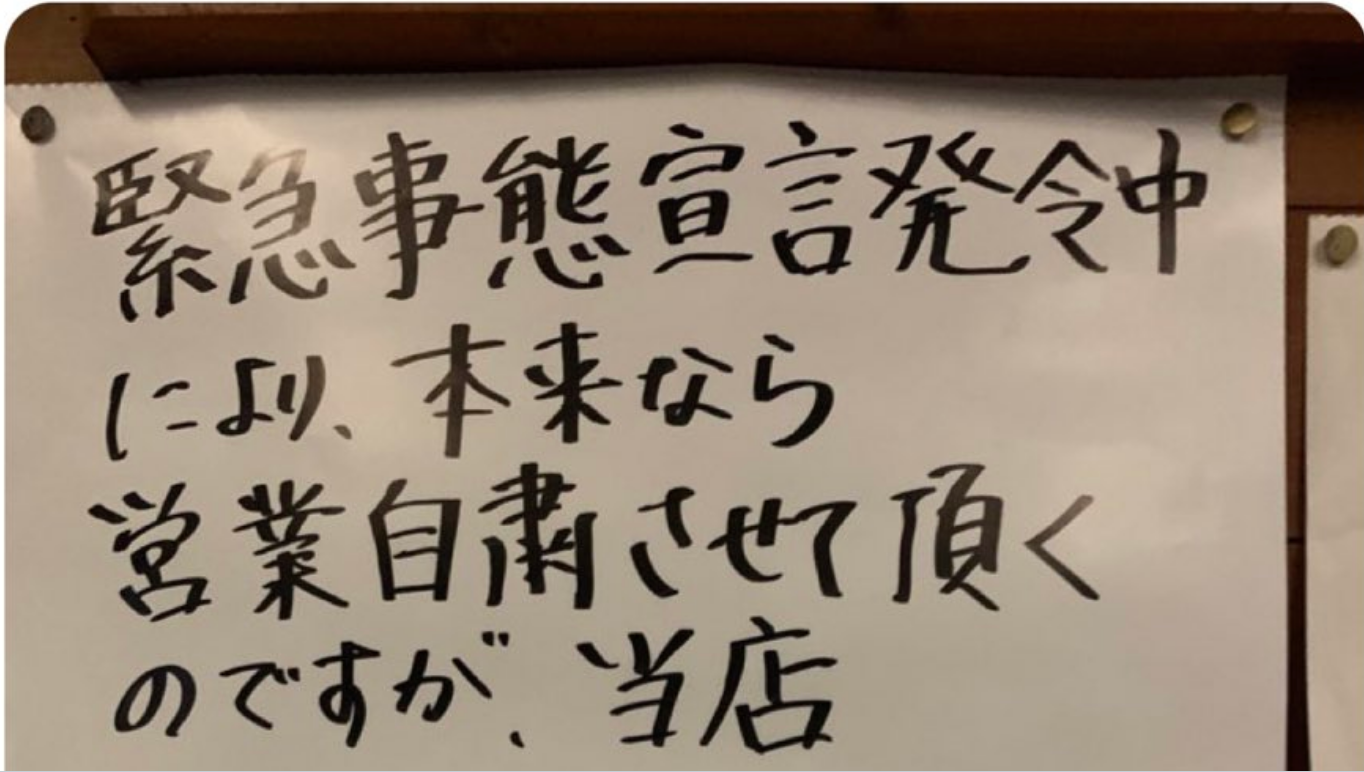 緊急事態宣言発令中
により、本来なら
営業自粛させて頂く
のですが、当店